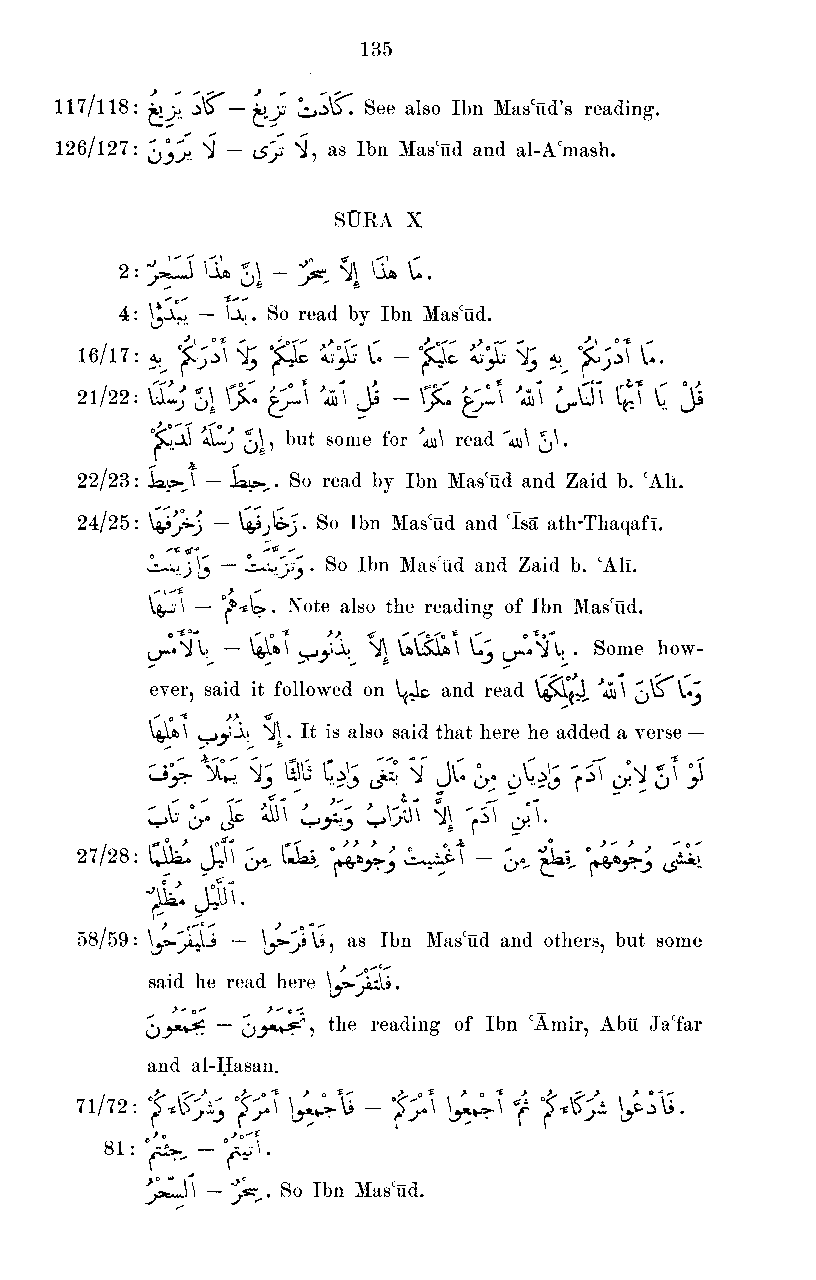 135
117/118: كَادَ يَزِيغُ – كَادَتْ تَزِيغُ. See also Ibn Masʿūd's reading.
126/127: لَا يَرَوْنَ – لَا تَرَى, as Ibn Masʿūd and al-Aʿmash.
SŪRA X
2: إِنَّ هٰذَا لَسَٰحِرٌ – مَا هٰذَا إِلَّا سِحْرٌ.
4: يَبْدَؤُا – بَدَأَ. So read by Ibn Masʿūd.
16/17: مَا تَلَوْتُهُ عَلَيْكُمْ وَلَا أَدْرَىٰكُمْ بِهِ – مَا أَدْرَىٰكُمْ بِهِ وَلَا تَلَوْتُهُ عَلَيْكُمْ.
21/22: قُلِ ٱللّٰهُ أَسْرَعُ مَكْرًا إِنَّ رُسُلَنَا – قُلْ يَا أَيُّهَا ٱلنَّاسُ ٱللّٰهُ أَسْرَعُ مَكْرًا
إِنَّ رُسْلَهُ لَدَيْكُمْ, but some for اللهُ read انّ اللهَ.
22/23: أُحِيطَ – حِيطَ. So read by Ibn Masʿūd and Zaid b. ʿAlī.
24/25: زُخْرُفَهَا – زَخَارِفَهَا. So Ibn Masʿūd and ʿĪsā ath-Thaqafī.
وَٱزَّيَّنَتْ – وَتَزَيَّنَتْ. So Ibn Masʿūd and Zaid b. ʿAlī.
أَتَىٰهَا – جَاءَهُمْ. Note also the reading of Ibn Masʿūd.
بِٱلْأَمْسِ – بِٱلْأَمْسِ وَمَا أَهْلَكْنَاهَا إِلَّا بِذُنُوبِ أَهْلِهَا. Some how-
ever, said it followed on عليها and read وَمَا كَانَ ٱللّٰهُ لِيُهْلِكَهَا
إِلَّا بِذُنُوبِ أَهْلِهَا. It is also said that here he added a verse —
لَوْ أَنَّ لِٱبْنِ آدَمَ وَادِيَانِ مِنْ مَالٍ لَٱبْتَغَى وَادِيًا ثَالِثًا وَلَا يَمْلَأُ جَوْفَ
ٱبْنِ آدَمَ إِلَّا ٱلتُّرَابُ وَيَتُوبُ ٱللّٰهُ عَلَى مَنْ تَابَ.
27/28: أُغْشِيَتْ وُجُوهُهُمْ قِطَعًا مِنَ ٱلَّيْلِ مُظْلِمًا – يَغْشَى وُجُوهَهُمْ قِطَعٌ مِنَ
ٱللَّيْلِ مُظْلِمٌ.
58/59: فَلْيَفْرَحُوا – فَٱفْرَحُوا, as Ibn Masʿūd and others, but some
said he read here فَلْتَفْرَحُوا.
يَجْمَعُونَ – تَجْمَعُونَ, the reading of Ibn ʿĀmir, Abū Jaʿfar
and al-Ḥasan.
71/72: فَأَجْمِعُوا أَمْرَكُمْ وَشُرَكَاءَكُمْ – فَٱدْعُوا شُرَكَاءَكُمْ ثُمَّ أَجْمِعُوا أَمْرَكُمْ.
81: جِئْتُمْ – أَتَيْتُمْ.
ٱلسِّحْرُ – سِحْرٌ. So Ibn Masʿūd.